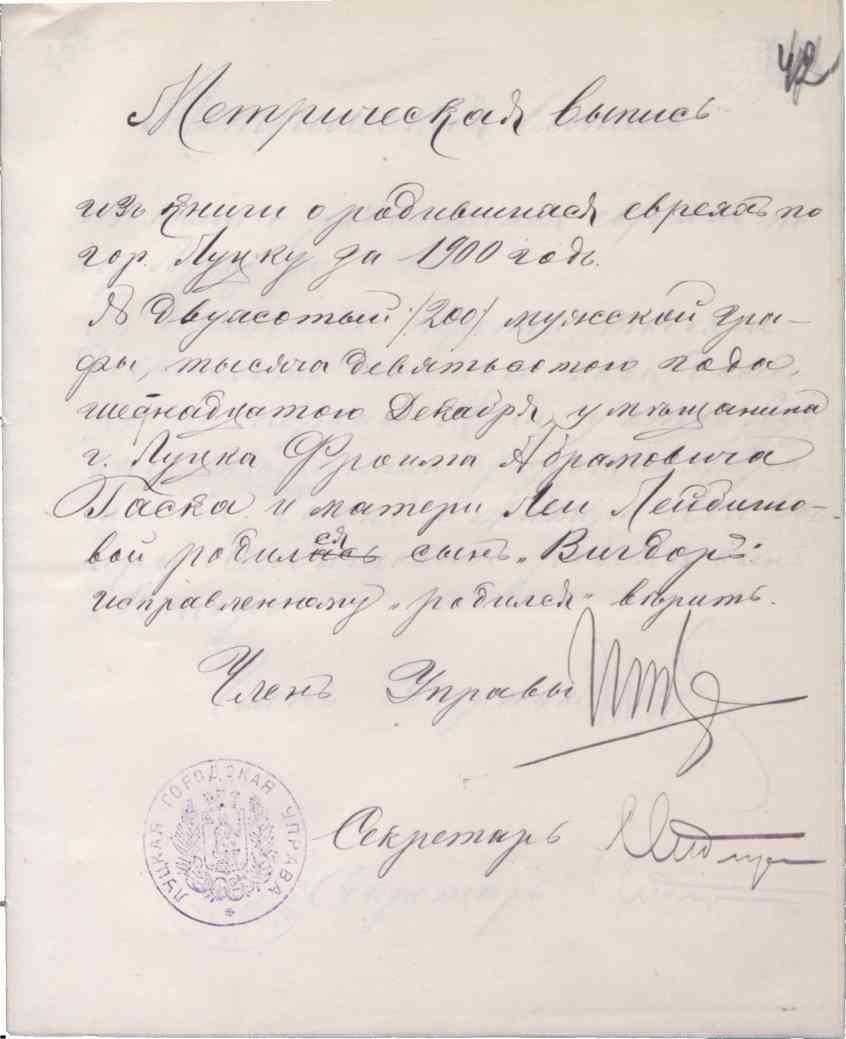 42
Метрическая выпись
изъ книги о родившихся евреяхъ по
гор. Луцку за 1900 годъ.
№ двухсотый /200/ мужской гра-
фы, тысяча девятьсотого года,
шестнадцатого Декабря, у мѣщанина
г. Луцка Фроима Абрамовича
Гаска и матери Леи Лейбишо-
вой родился сынъ „Вигдоръ".
исправленному „родился" вѣрить.
Членъ Управы
ЛУЦКАЯ ГОРОДСКАЯ УПРАВА
Секретарь